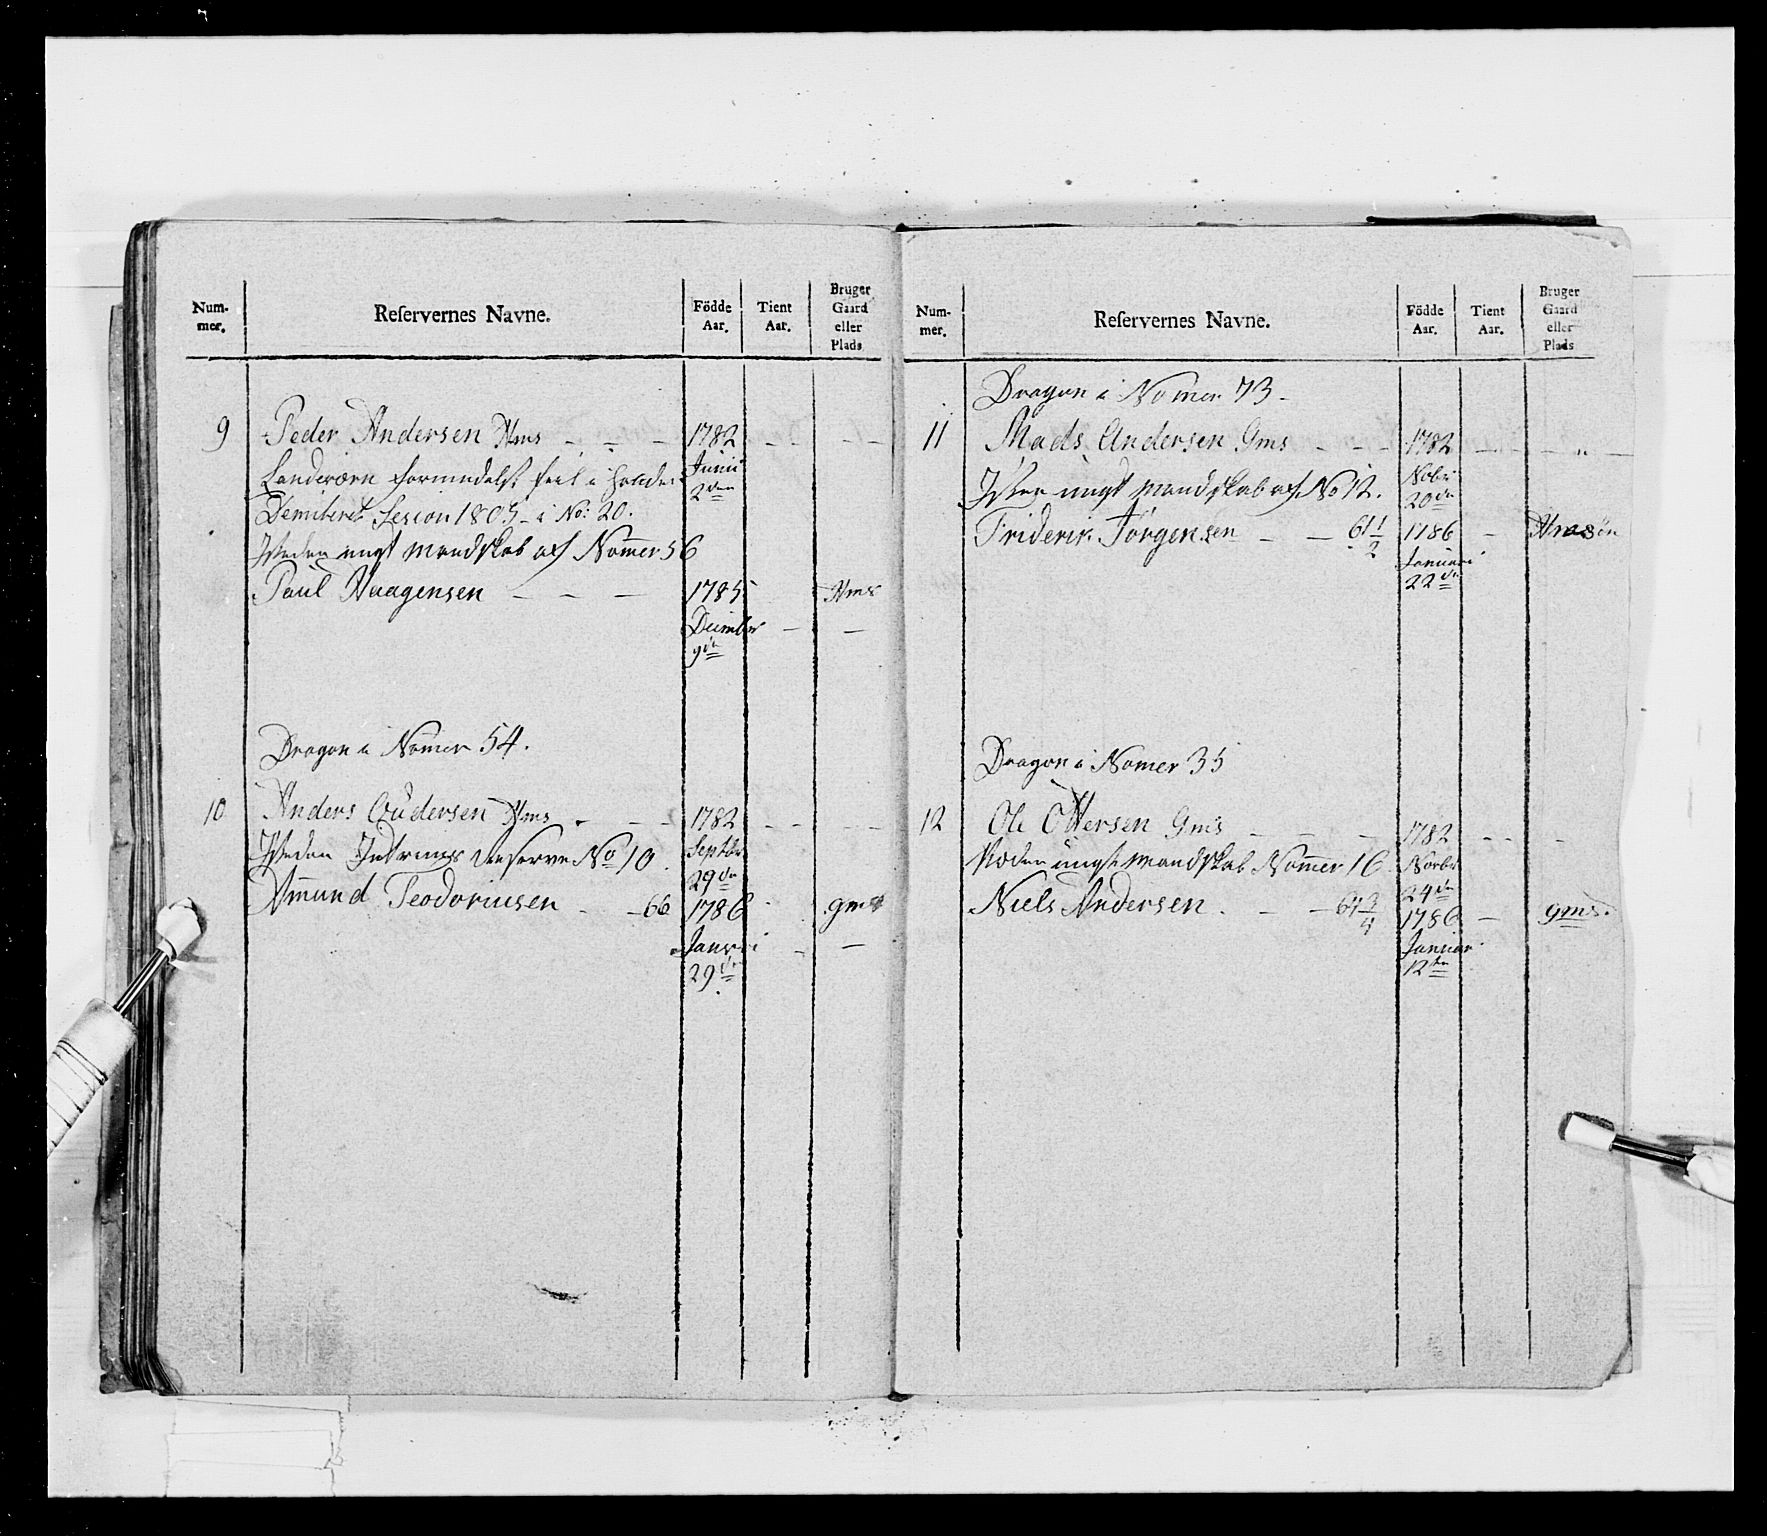 Num-
mer.
Reservernes Navne.
Födde
Aar.
Tient
Aar.
Bruger
Gaard
eller
Plads
9 Peder Andersen Hms 1782
Junii
2den
Landeværn formedelst feil i
Demiteret Sesion 1805 i No: 20.
Isteden ungt Mandskab af Nomer 56
Paul Haagensen 1785 Hms
Decimbr
9de
Dragon i Nomer 54.
10 Anders Gudersen Hms 1782
Septbr
29de
Isteden Reserve No 10.
Amund Teodoriusen 66 1786 gms
Januari
29de
Num-
mer.
Reservernes Navne.
Födde
Aar.
Tient
Aar.
Bruger
Gaard
eller
Plads
Dragon i Nomer 73
11 Mads Andersen Gms 1782
Nobr
20de
ungt Mandskab af No 12.
Friderik Jörgensen 61 1/2 1786
Januari
22de
Dragon i Nomer 35
12 Ole Ottersen Gms 1782
ungt Mandskab Nomer 16 Novbr
24de
Niels Andersen 1786 gms.
Januar
12te